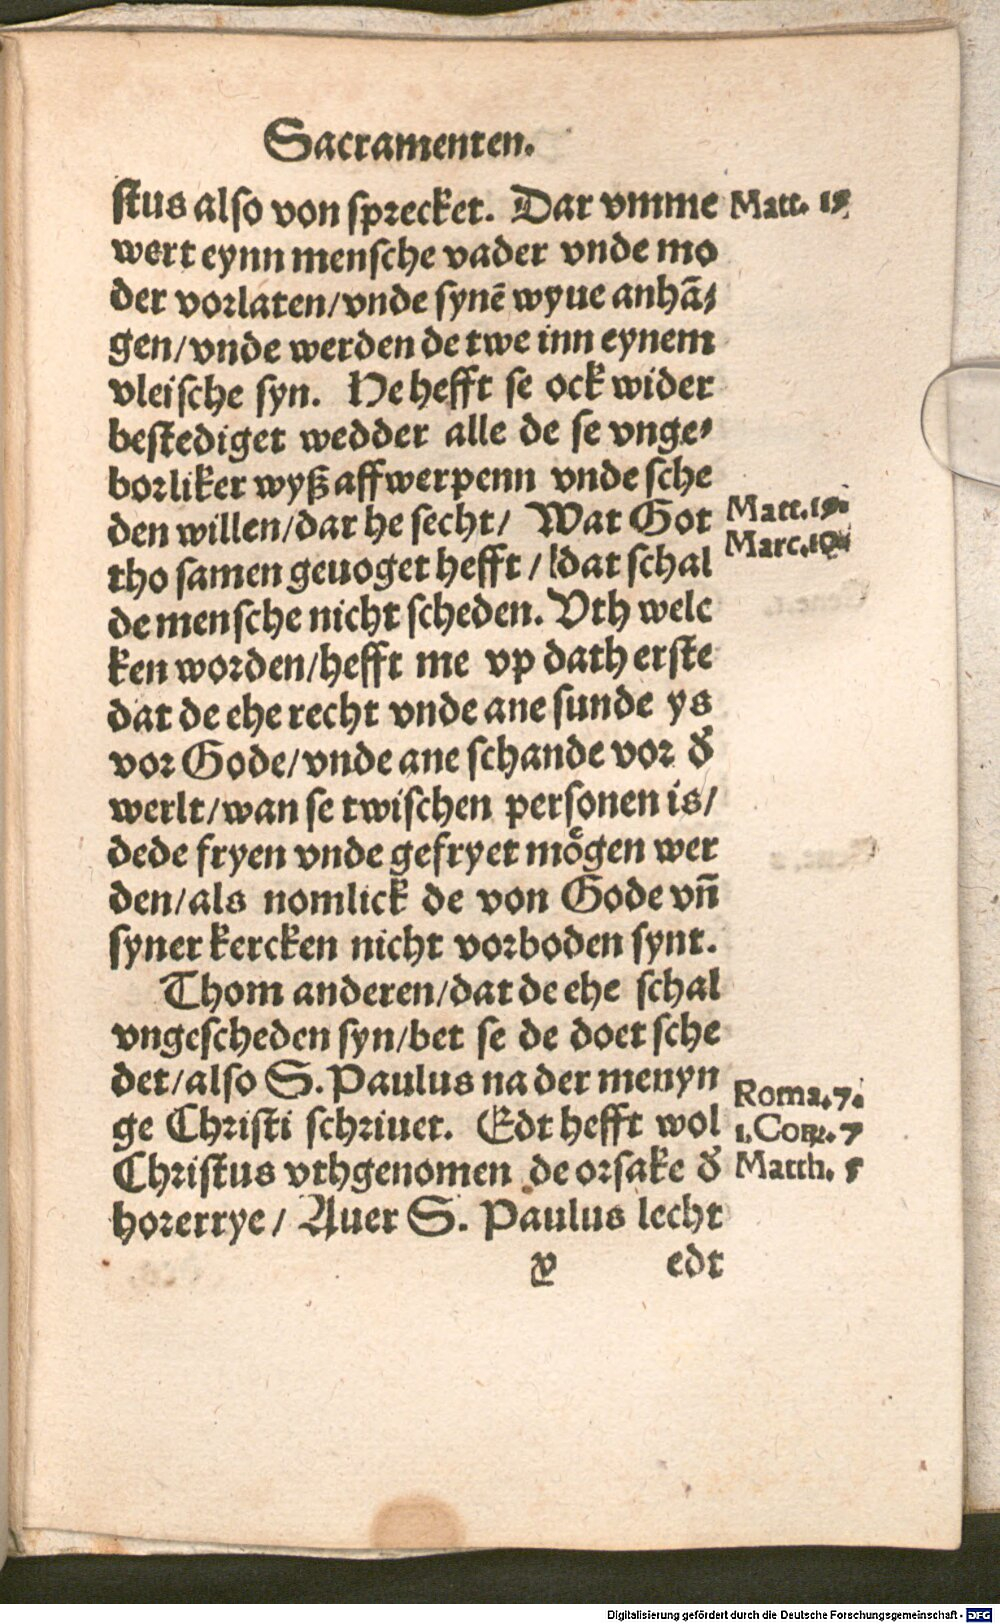 Sacramenten.
stus also von sprecket. Dar vmme Matt. 19
wert eynn mensche vader vnde mo
der vorlaten/vnde synē wyue anhā⸗
gen/vnde werden de twe inn eynem
vleische syn. He hefft se ock wider
bestediget wedder alle de se vnge⸗
borliker wyß affwerpenn vnde sche
den willen/dar he secht/ Wat Got Matt.19.
tho samen geuoget hefft / dat schal Marc.10.
de mensche nicht scheden. Vth welc
ken worden/hefft me vp dath erste
dat de ehe recht vnde ane sunde ys
vor Gode/vnde ane schande vor d̓
werlt/wan se twischen personen is/
dede fryen vnde gefryet moͤgen wer
den/als nomlick de von Gode vn̄
syner kercken nicht vorboden synt.
Thom anderen/dat de ehe schal
vngescheden syn/bet se de doet sche
det/also S. Paulus na der menyn Roma.7.
ge Christi schriuet. Edt hefft wol 1.Cor. 7
Christus vthgenomen de orsake d̓ Matth. 5
horerrye/ Auer S. Paulus lecht
v edt
Digitalisierung gefördert durch die Deutsche Forschungsgemeinschaft - DFG